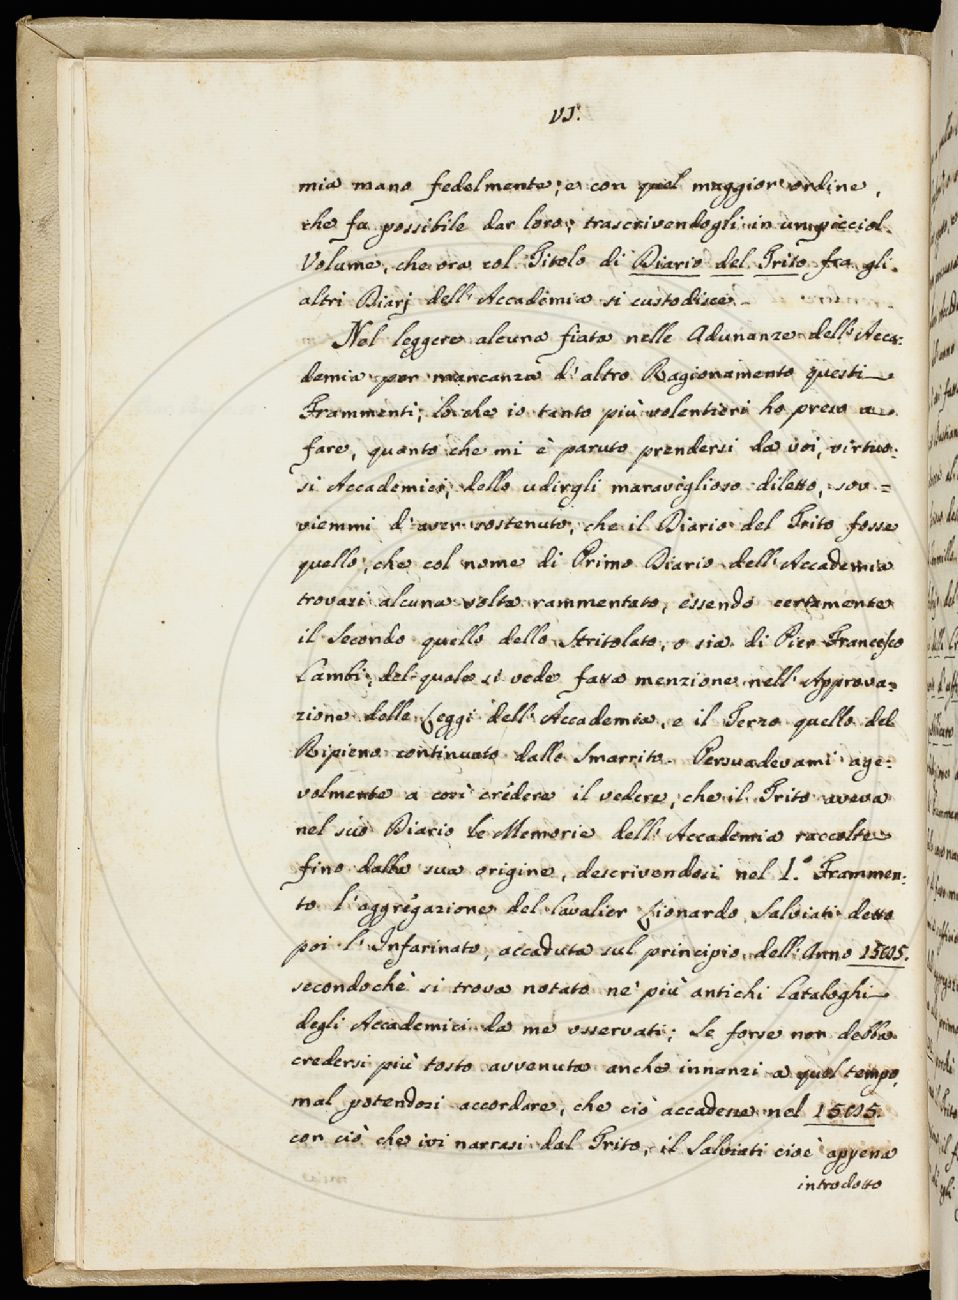 VI.
mia mano fedelmente, e con quel maggior ordine,
che fu possibile dar loro; trascrivendogli in un picciol
Volume, che ora col Titolo di Diario del Trito fra gli
altri Diarj dell'Accademia si custodisce.
Nel leggere alcuna fiata nelle Adunanze dell'Acca:
demia per mancanza d'altro Ragionamento questi
Frammenti; lo che io tanto più volentieri ho preso a
fare, quanto che mi è paruto prendersi da voi, virtuo:
si Accademici, dello udirgli maraviglioso diletto, sov=
viemmi d'aver sostenuto, che il Diario del Trito fosse
quello, che col nome di Primo Diario dell'Accademia
trovasi alcuna volta rammentato, essendo certamente
il Secondo quello dello Stritolato, o sia di Pier Francesco
Cambi, del quale si vede fatta menzione nell'Approva=
zione delle Leggi dell'Accademia, e il Terzo quello del
Ripieno continuato dallo Smarrito. Persuadevami age:
volmente a così credere il vedere, che il Trito aveva
nel suo Diario le Memorie dell'Accademia raccolte
fino dalla sua origine, descrivendosi nel 1.° Frammen:
to l'aggregazione del Cavalier Lionardo Salviati detto
poi l'Infarinato, accaduta sul principio dell'Anno 1585.
secondochè si trova notato ne' più antichi Cataloghi
degli Accademici da me osservati; Se forse non debba
credersi più tosto avvenuta anche innanzi a quel tempo,
mal potendosi accordare, che ciò accadesse nel 1585.
con ciò che ivi narrasi dal Trito, il Salviati cioè appena
introdotto